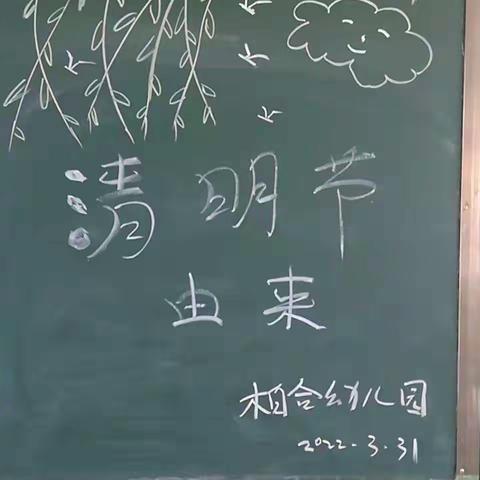 清明节
由来
相合幼儿园
2022.3.31